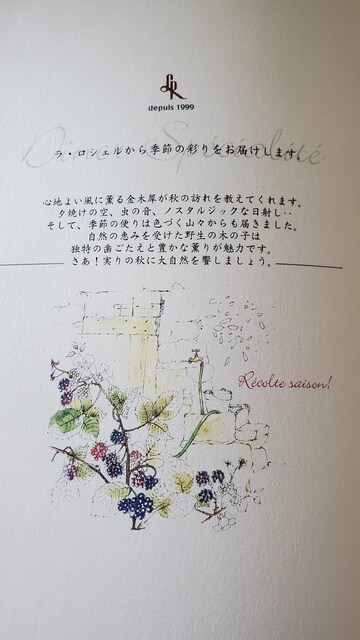 LR
depuis 1999
ラ・ロシェルから季節の彩りをお届けします。
Spécialité
心地よい風に薫る金木犀が秋の訪れを教えてくれます。
夕焼けの空、虫の音、ノスタルジックな日射し‥
そして、季節の便りは色づく山々からも届きました。
自然の恵みを受けた野生の木の子は
独特の歯ごたえと豊かな薫りが魅力です。
さあ！実りの秋に大自然を饗しましょう。
Récolte saison!